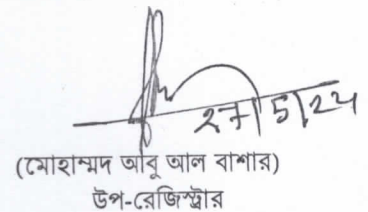 ২৭/5/24
(মোহাম্মদ আবু আল বাশার)
উপ-রেজিস্ট্রার